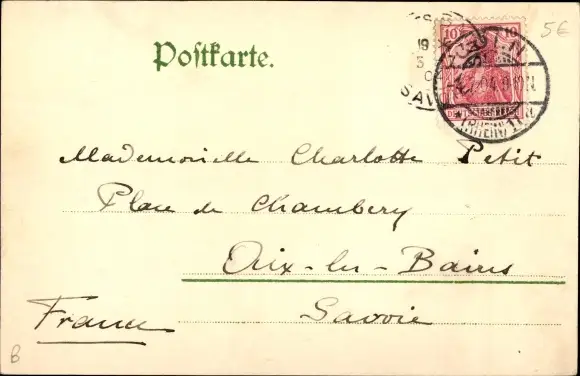 Postkarte.
10 10
5€
CÖLN
19
5
SAV
DEUTSCHES REICH
*(RHEIN) 1
Mademoiselle Charlotte Petit
Place de Chambery
Aix-les-Bains
Savoie
France
B